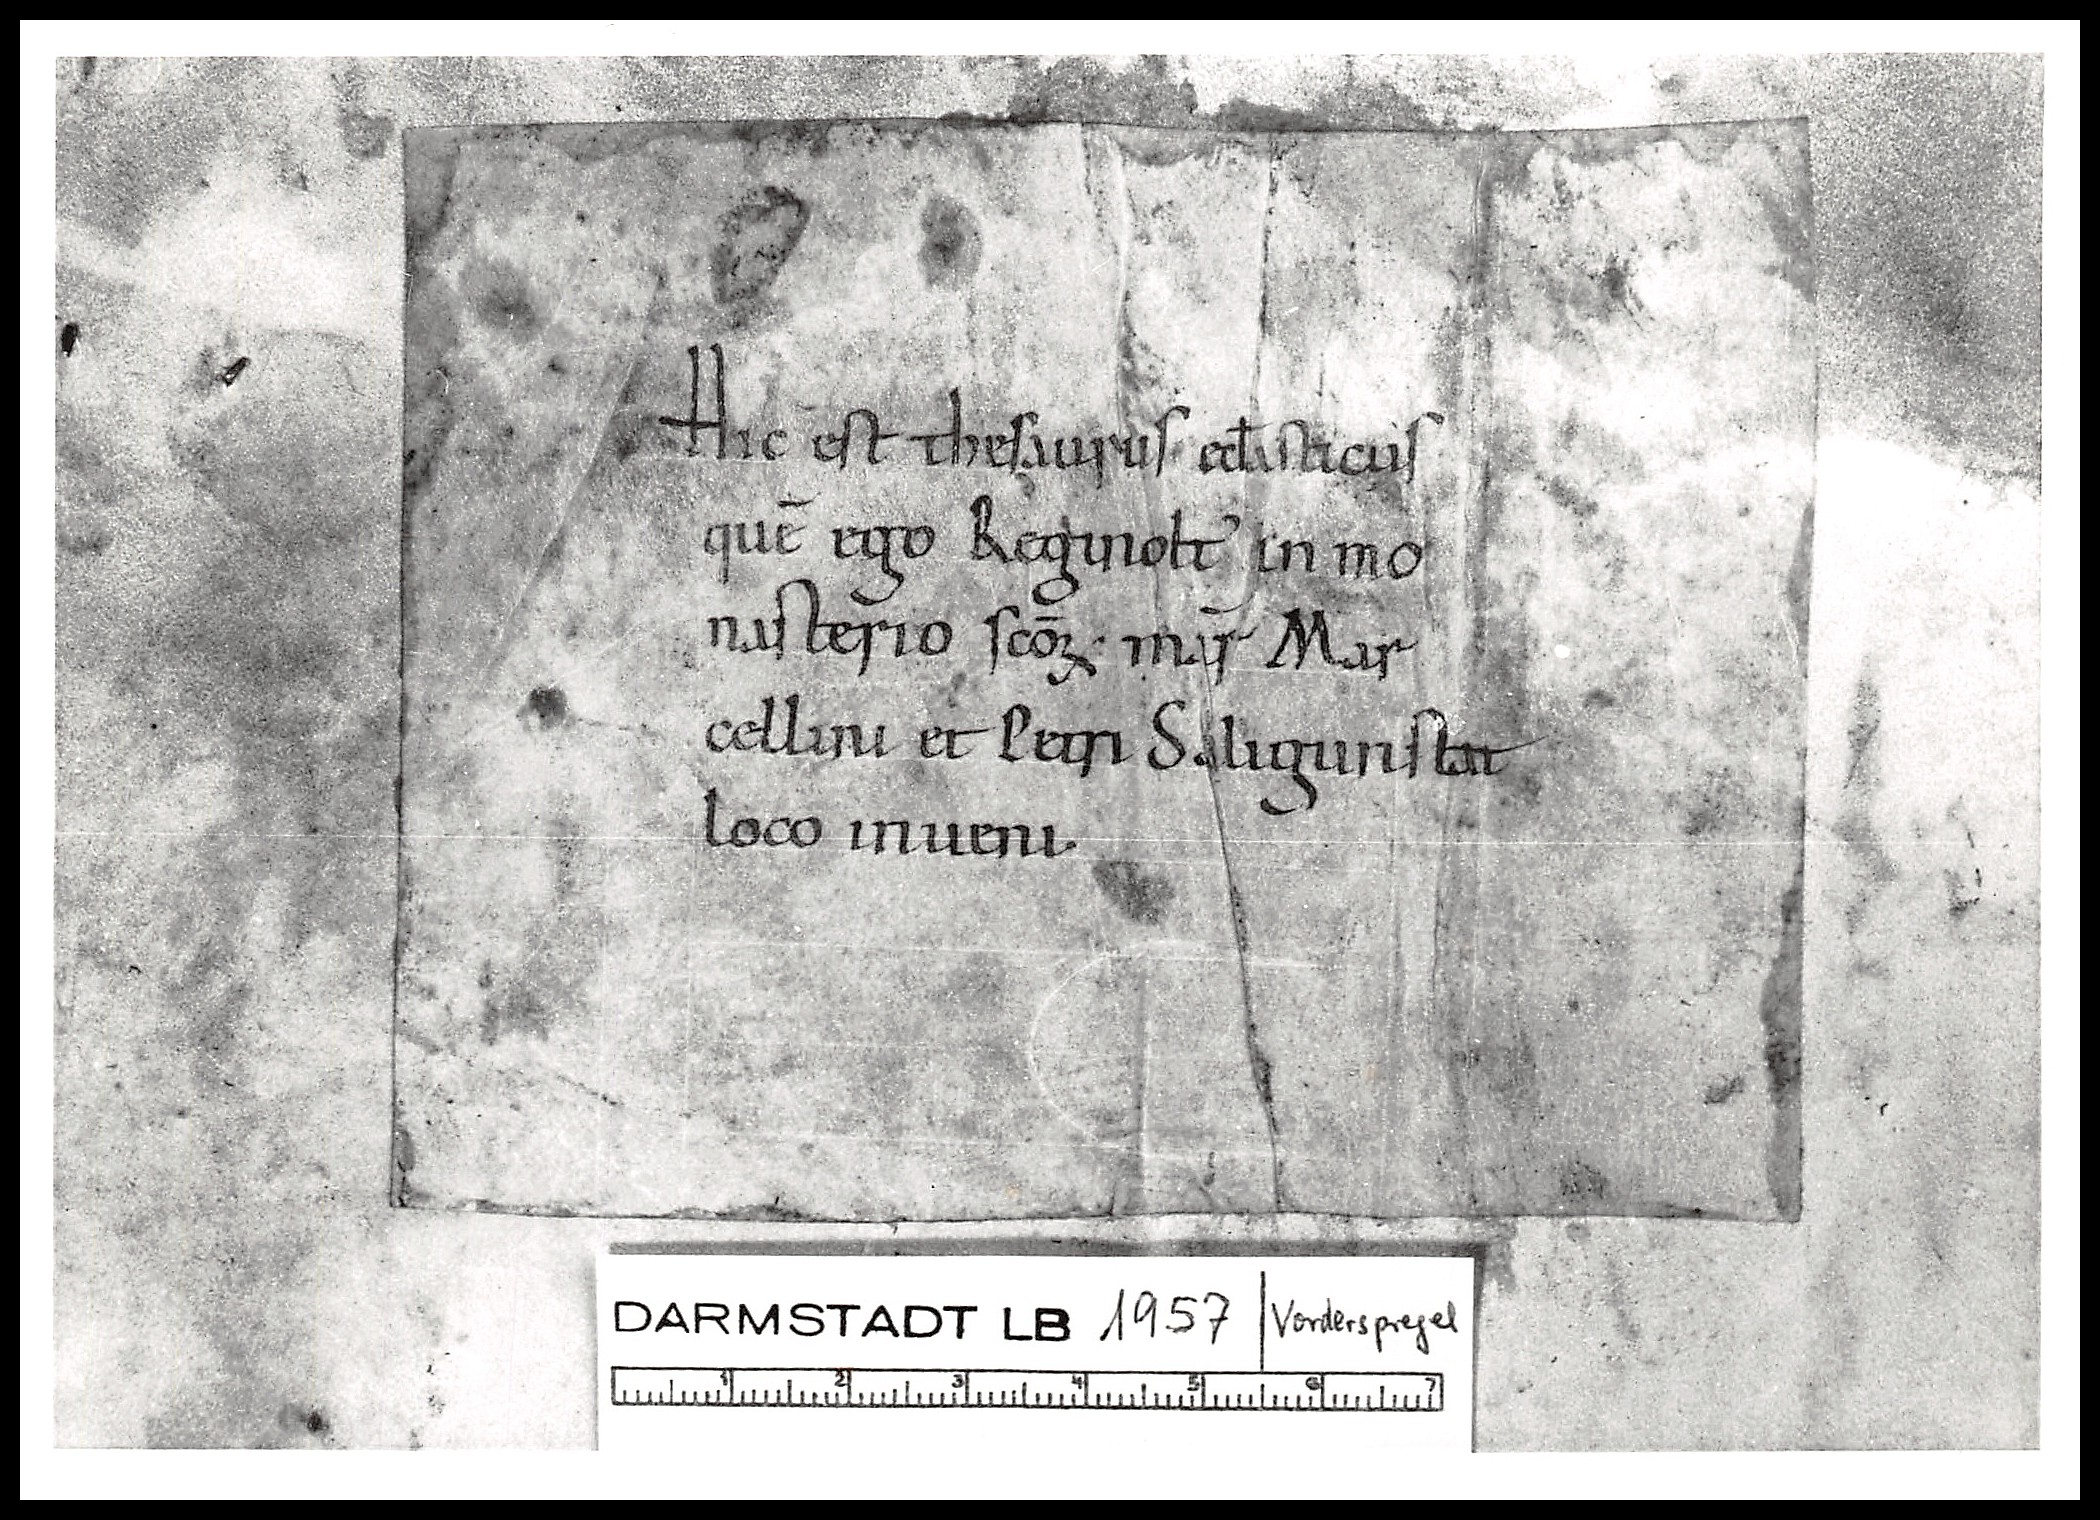 Hic est thesaurus eccl̅asticus
quē ego Reginolt in mo
nasterio scōꝝ. mar̅ Mar
cellini et Petri Saligunstat
loco inueni.
DARMSTADT LB 1957 | Vorderspiegel
1 2 3 4 5 6 7